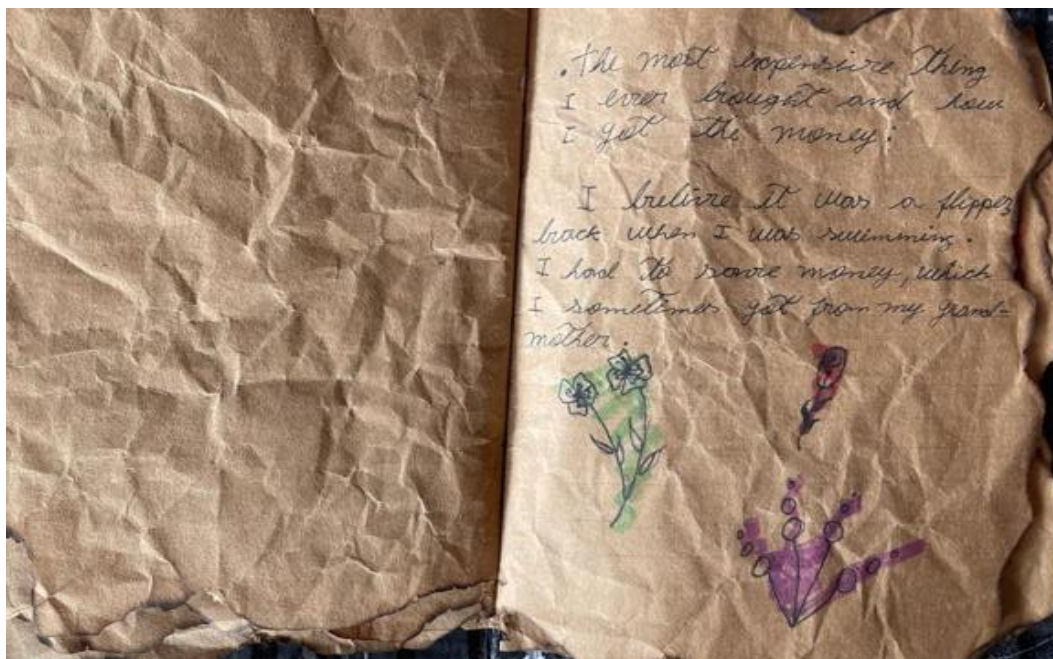 . The most expensive thing
I ever brought and how
I got the money:
I belive it was a flipper
back when I was swimming.
I had to save money, which
I sometimes got from my grand-
mother.